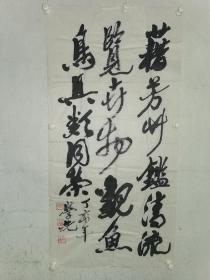 藉芳草鉴清流
览卉物观鱼
鸟具类同荣
丁亥年